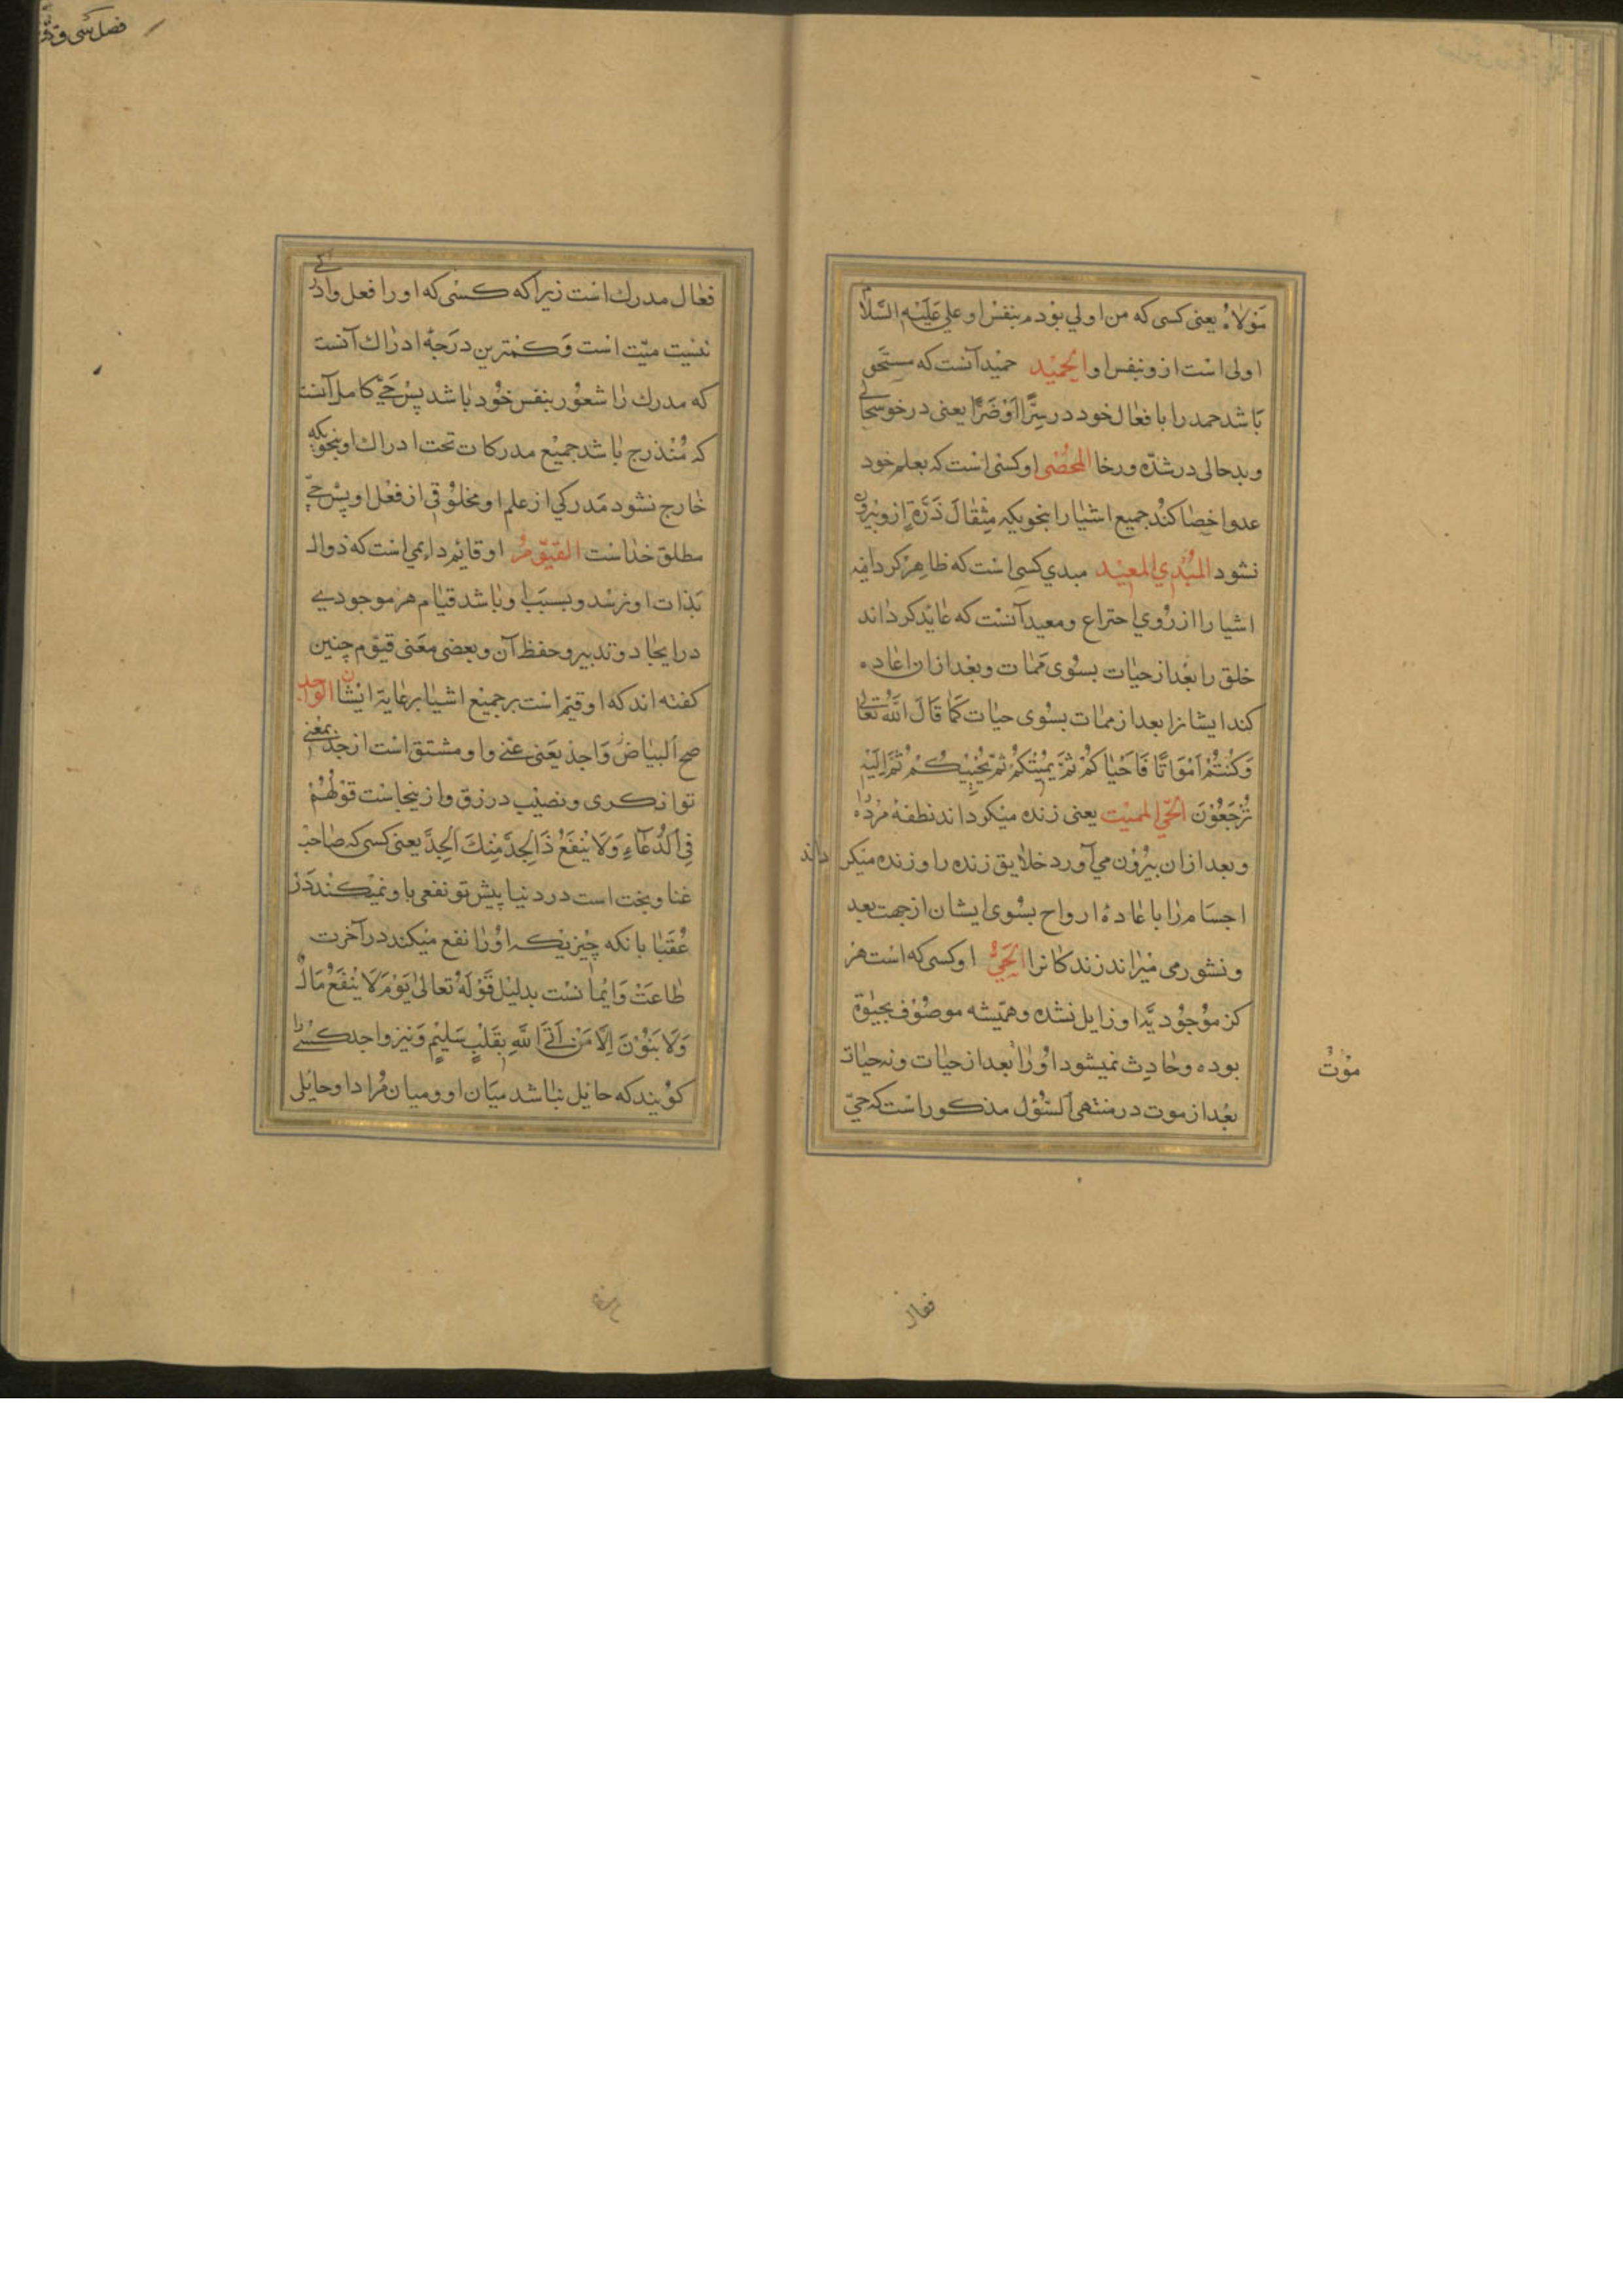 مَوْلاهُ یعنی کسی که من اولي بوْدم بنفس او علي عَلَيْهِ السَّلامُ
اولی است ازو بنفس او الحَمِيْد حمیْد آنست که مستَحَق
بَاشد حمد را بافعال خود در سِرَّا اَوْ ضَرَّا یعنی در خوشحالی
و بدحالی در شدّه و رخا المحْصٰی او کسی است که بعلم خود
عدوا حصا کند جمیع اشیا را بنحویکه مِثْقالَ ذَرّةٍ ازو بیرون
نشود المبْدِي المعِیْد مبدي کسی است که ظاهِر کردانیه
اشیا را از رُوي احتراع و معید آنست که عایدکرداند
خلق را بعْد از حیات بسُوی مَمات و بعْد ازان اعاده
کند ایشانرا بعد از ممات بسُوی حیات کَمَا قَالَ اللّٰهُ تَعَالٰی
وَکُنْتُمْ اَمْوَاتًا فَاَحْیَاکُمْ ثُمَّ یُمِیْتُکُمْ ثُمَّ یُحْیِیْکُمْ ثُمَّ اِلَیْهِ
تُرْجَعُوْنَ الحَيّ المميْت یعنی زنده میکرداند نطفهٔ مُرْده را
و بعد ازان بیرُوْن مي آورد خلایق زنده را و زنده میکر داند
اجسَام را باعادهٔ ارواح بسُوی ایشان ازجهت بعد
و نشور می میراند زندکانرا الحَيُّ او کسی که است هر
کز موْجُود یّدا و زایل نشده و همیشه موصُوْف بحیٰوة
بوده و حادِث نمیشود اوُرا بعد از حیات و نه حیات
موْت
بعْد از موت در منتهی السّؤل مذکور است که حيّ
فعال
فصل سی و
فعال مدرك است زیراکه کسی که اورا فعل و ادراکی
نیست میّت است وَ کمترین درَجهٔ ادراك آنست
که مدرك را شعوُر بنفس خُود باشد پسْ حَيّ کامل آنست
که مُنْدرج باشد جمیْع مدرکات تحت ادراك او بنحویکه
خارج نشود مَدرکي از علم او و مخلُوْقی از فعْل او پسْ حيّ
مطلق خداست القیّومُ او قایم دایمی است که زوال
بَذات او نرسْد و بسبَب او باشد قیام هر موجودیے
در ایجاد و تدبیر و حفظ آن و بعضی معَنی قیوم چنین
کفته اند که او قیم است بر جمیع اشیا برعایة ایشان الوَاجد
صح البیاضُ وَاجد یَعَنی غنی و او مشتق است از جد بمعْني
توانکری و نصیْب در رزق و ازینجاست قوْلهُمْ
فِي الدُّعَآءِ وَلَا یُنْفَعُ ذَالجِدَّ مِنْكَ الجِدَّ یعنی کسی که صاحبْ
غنا و بخت است در دنیا پیش تو نفعی باو نمیْکند دَر
عُقْبا بانکه چیْزیکه اوُرا نفع میْکند در آخرت
طاعَتْ وَ ایْمانسْت بدلیْل قَوْلهُ تعالیٰ یَوْمَ لَا یُنْفَعُ مَالٌ
وَلَا بَنُوْنَ اِلَّا مَنْ اَتَی اللّٰهِ بِقَلْبٍ سَلِیْمٍ وَ نیز واجد کسی را
کویند که حایل نباشد میَان او و میان مُراد او حایلی